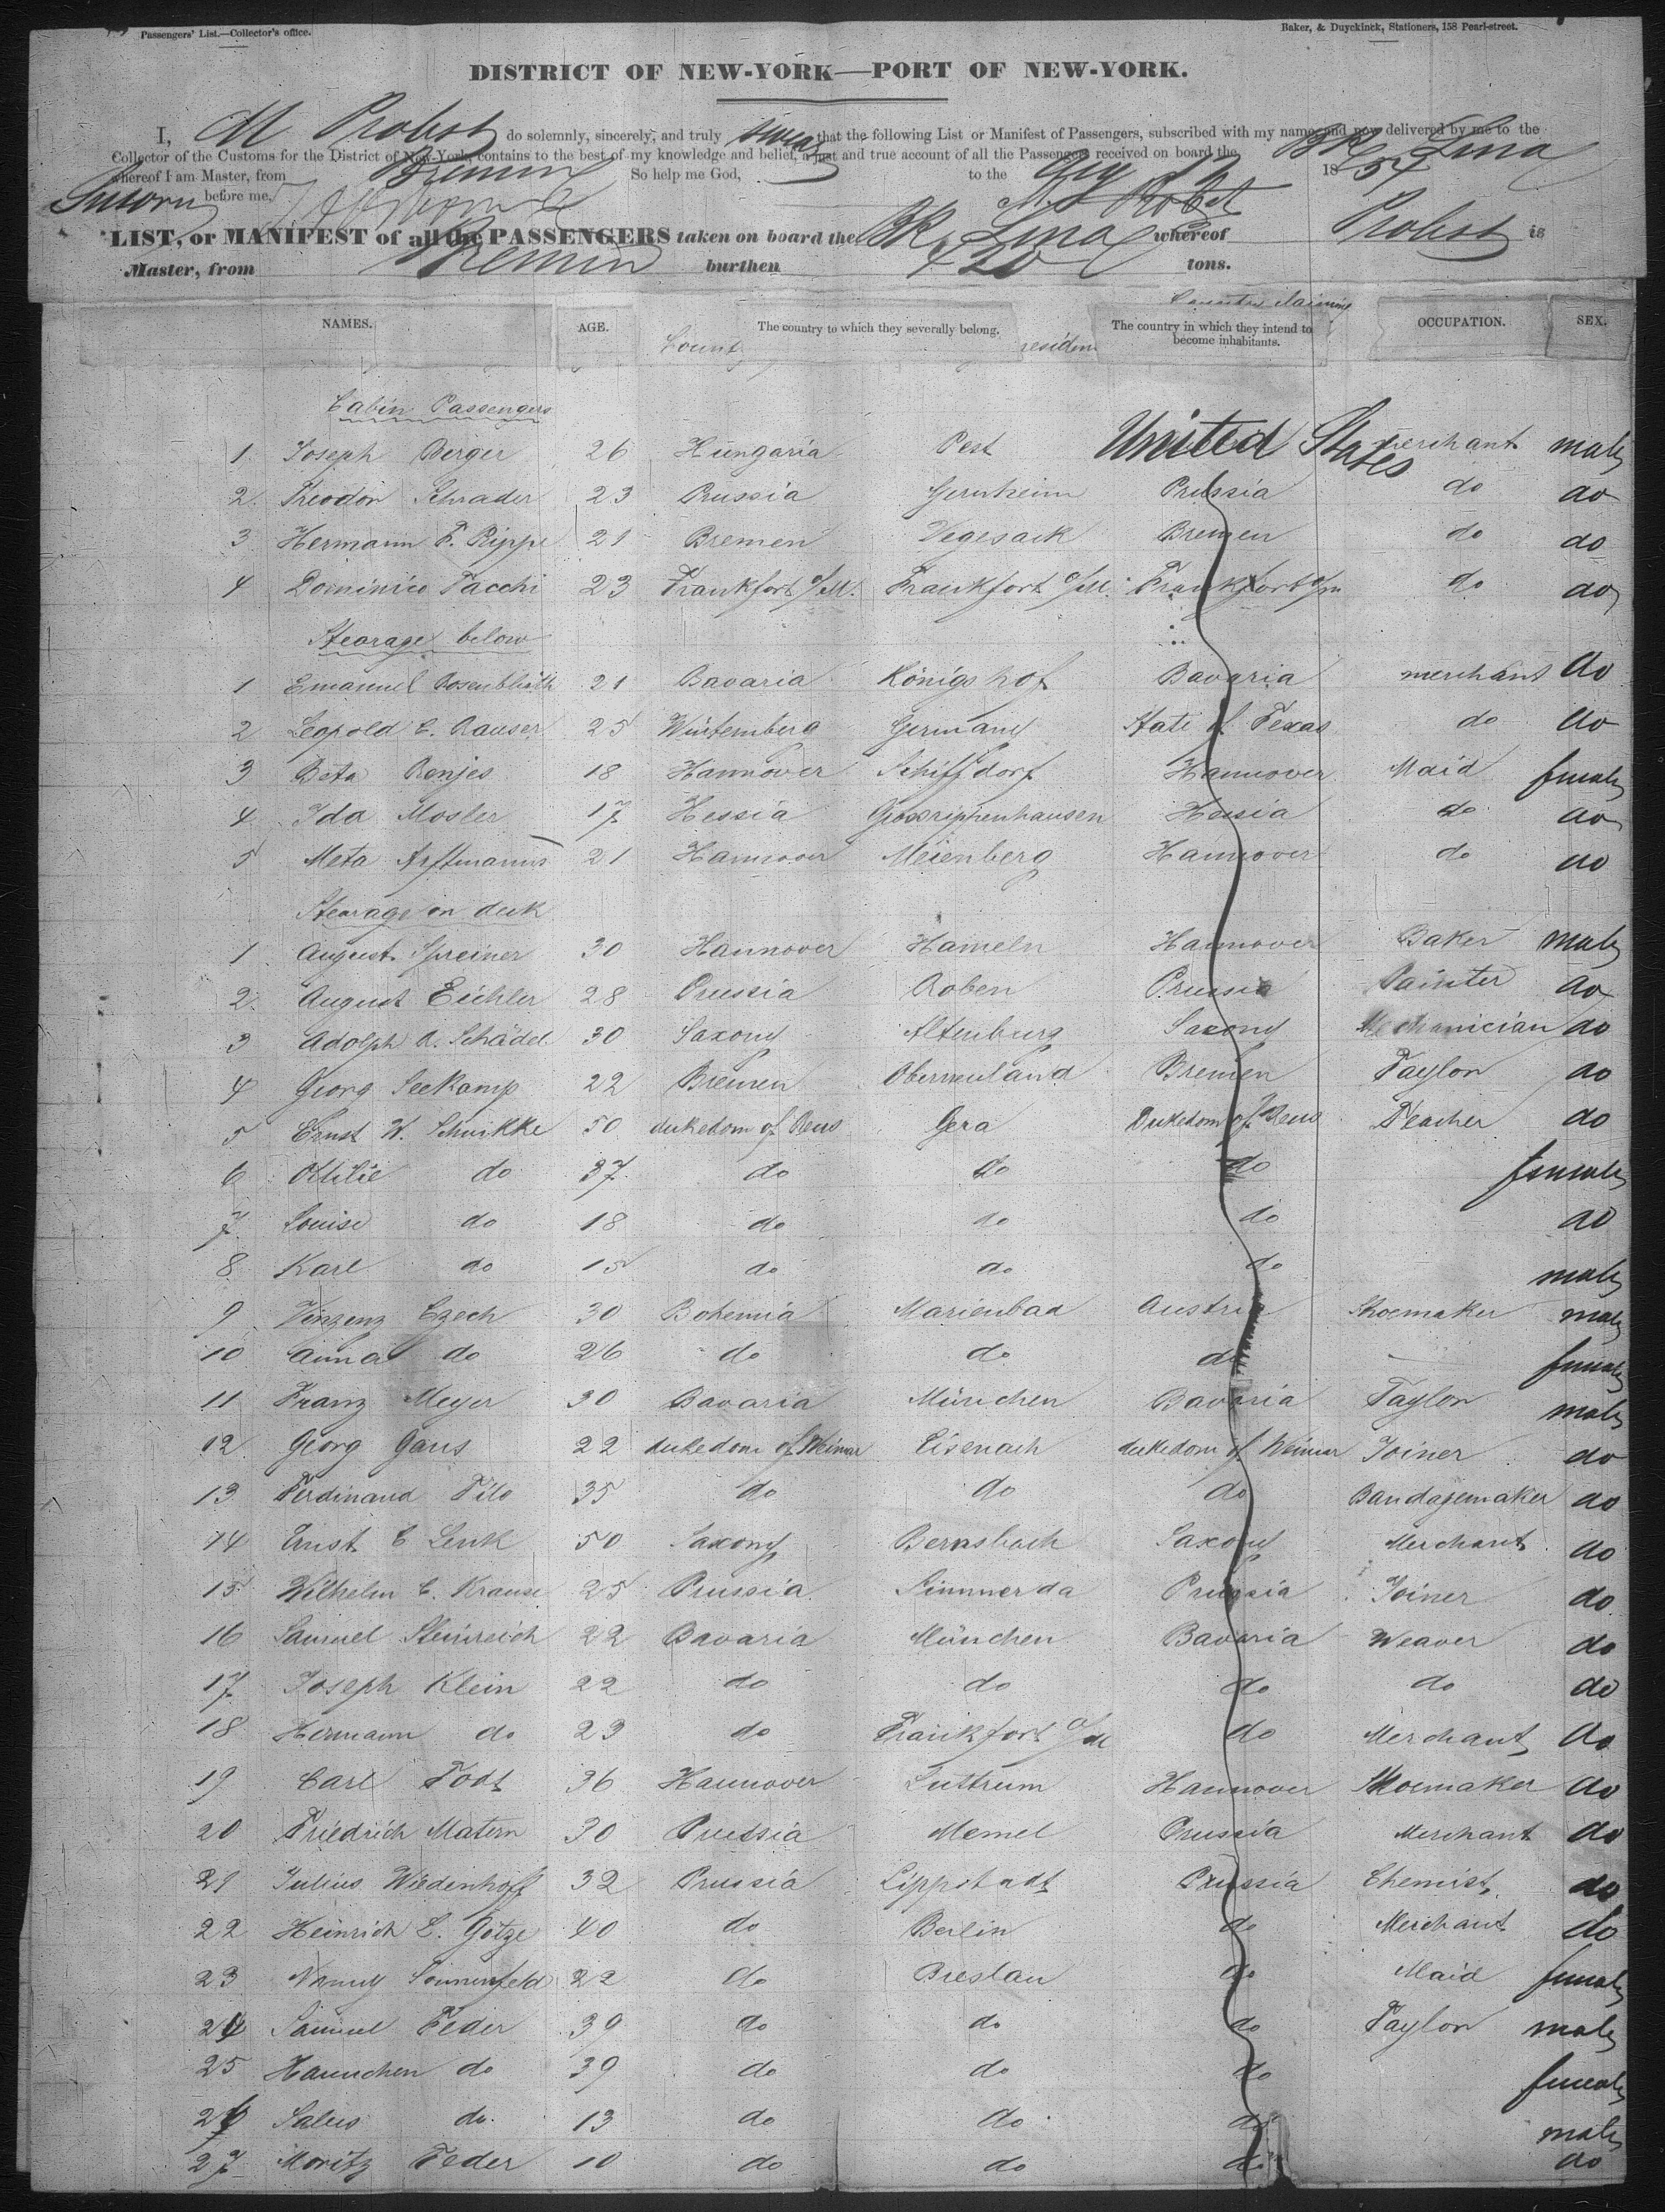 Passengers' List.—Collector's office.
Baker, & Duyckinck, Stationers, 158 Pearl-street.
DISTRICT OF NEW-YORK—PORT OF NEW-YORK.
I, M Probst do solemnly, sincerely, and truly swear that the following List or Manifest of Passengers, subscribed with my name, and now delivered by me to the
Collector of the Customs for the District of New-York, contains to the best of my knowledge and belief, a just and true account of all the Passengers received on board the Bk Lina
whereof I am Master, from Bremen So help me God,
to the Aug 18 54
Sworn before me, M. Probst
LIST, or MANIFEST of all the PASSENGERS taken on board the Bk Lina whereof Probst is
Master, from Bremen burthen 420 tons.
NAMES. AGE. The country to which they severally belong. The country in which they intend to become inhabitants. OCCUPATION. SEX.
Cabin Passengers
1 Joseph Berger 26 Hungaria Pest United States merchant male
2 Theodor Schrader 23 Prussia Gernheim Prussia do do
3 Hermann F. Rippe 21 Bremen Vegesack Bremen do do
4 Dominico Tacchi 23 Frankfort o/M. Frankfort o/M. Frankfort o/m do do
Stearage below
1 Emanuel Rosenblüth 21 Bavaria Königshof Bavaria merchant do
2 Leopold C. Rauser 25 Würtemberg Germany State of Texas do do
3 Beta Renjes 18 Hannover Schiffdorf Hannover Maid female
4 Ida Mosler 17 Hessia Grossriphenhausen Hessia do do
5 Meta 21 Hannover Meienberg Hannover do do
Stearage on deck
1 August Spreiner 30 Hannover Hameln Hannover Baker male
2 August Eichler 28 Prussia Roben Prussia Painter do
3 Adolph R. Schädel 30 Saxony Altenburg Saxony Mechanician do
4 Georg Seekamp 22 Bremen Oberneuland Bremen Taylor do
5 Ernst W. Schwikke 50 dukedom of Reus Gera Dukedom of Reus Teacher do
6 Ottilie do 37 do do do female
7 Louise do 18 do do do do
8 Karl do 15 do do do male
9 Vinzenz Czech 30 Bohemia Marienbad Austria Shoemaker male
10 Anna do 26 do do do female
11 Franz Meyer 30 Bavaria München Bavaria Taylor male
12 Georg Gans 22 dukedom of Weimar Eisenach dukedom of Weimar Joiner do
13 Ferdinand Tilo 35 do do do Bandagemaker do
14 Ernst C Lenk 50 Saxony Bernsbach Saxony Merchant do
15 Wilhelm C. Krause 25 Prussia Sömmerda Prussia Joiner do
16 Samuel Steinreich 22 Bavaria München Bavaria Weaver do
17 Joseph Klein 22 do do do do do
18 Hermann do 23 do Frankfort o/M do Merchant do
19 Carl Todt 36 Hannover Luttrum Hannover Shoemaker do
20 Friedrich Matern 30 Prussia Memel Prussia Merchant do
21 Julius Wiedenhoff 32 Prussia Lippstadt Prussia Chemist do
22 Heinrich E. Götze 40 do Berlin do Merchant do
23 Nanny Sonnenfeld 22 do Breslau do Maid female
24 Samuel Feder 39 do do do Taylor male
25 Hannchen do 39 do do do female
26 Salus do 13 do do do male
27 Moritz Feder 10 do do do do